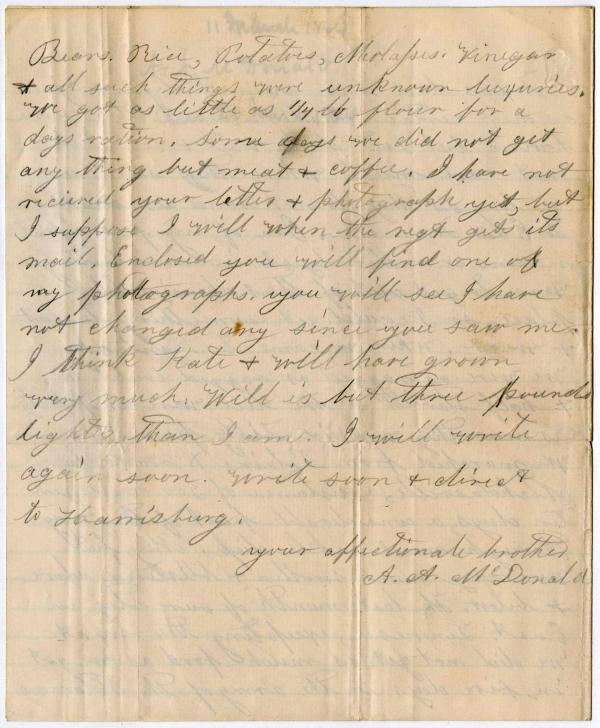 Beans. Rice, Potatoes, Molasses. Vinegar
& all such things were unknown luxuries.
We got as little as 1/4 lb flour for a
days ration. Some days we did not get
any thing but meat & coffee. I have not
recieved your letter & photograph yet, but
I suppose I will when the regt gets its
mail. Enclosed you will find one of
my photographs. you will see I have
not changed any since you saw me.
I think Kate & will have grown
very much. Will is but three pounds
lighter than I am. I will write
again soon. write soon & direct
to Harrisburg.
your affectionate brother
A. A. McDonald